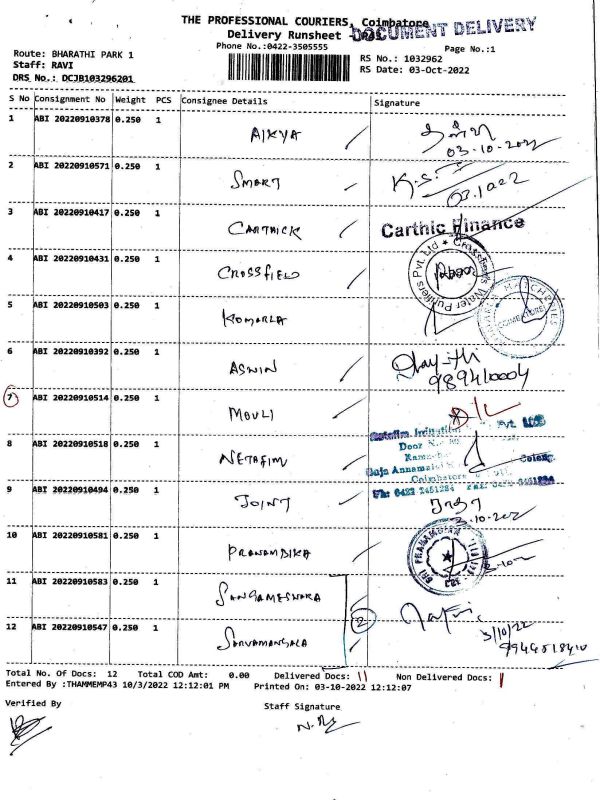 THE PROFESSIONAL COURIERS, Coimbatore
Delivery Runsheet -
DOCUMENT DELIVERY
Phone No.:0422-3505555
Page No.:1
Route: BHARATHI PARK 1
Staff: RAVI
DRS No.: DCJB103296201
RS No.: 1032962
RS Date: 03-Oct-2022
S No Consignment No Weight PCS Consignee Details Signature
1 ABI 20220910378 0.250 1 AIKYA
03-10-2022
2 ABI 20220910571 0.250 1 SMART K.S.
03.10.22
3 ABI 20220910417 0.250 1 CARTHICK Carthic Finance
4 ABI 20220910431 0.250 1 CROSSFIELD
Crossfields Water Purifiers Pvt. Ltd
5 ABI 20220910503 0.250 1 KOMARLA
COIMBATORE
6 ABI 20220910392 0.250 1 ASWIN
9894110004
7 ABI 20220910514 0.250 1 MOULI D/L
8 ABI 20220910518 0.250 1 NETAFIM
Netafim Irrigation Pvt. Ltd
Door No.
Raja Annamalai
Coimbatore
Ph: 0422 2451284
9 ABI 20220910494 0.250 1 JOINT
3-10-2022
10 ABI 20220910581 0.250 1 PRANAMBIKA
SRI PRANAMBIKA
11 ABI 20220910583 0.250 1 SANGAMESWARA
2
3/10/22
12 ABI 20220910547 0.250 1 SARVAMANGALA
9944518410
Total No. Of Docs: 12 Total COD Amt: 0.00 Delivered Docs: 11 Non Delivered Docs: 1
Entered By :THAMMEMP43 10/3/2022 12:12:01 PM Printed On: 03-10-2022 12:12:07
Verified By
Staff Signature